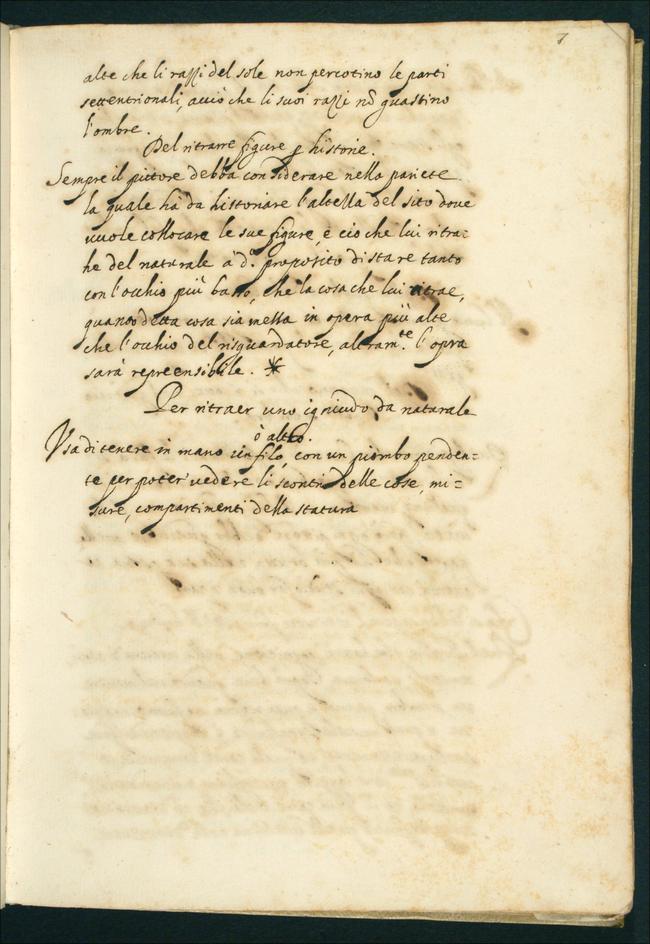 7
alte che li razzi del sole non percotino le parti
settentrionali, acciò che li suoi razzi nō guastino
l'ombre.
Del ritrarre figure p historie.
Sempre il pittore debba considerare nella pariete
la quale ha da historiare l'altezza del sito dove
vuole collocare le sue figure, e ciò che lui ritra-
he del naturale à d.º proposito di stare tanto
con l'occhio più basso, che la cosa che lui ritrae,
quanto detta cosa sia messa in opera più alte
che l'occhio del risguardatore, altram.te l'opra
sarà repreensibile. *
Per ritraer uno igniudo da naturale
ò altro.
Usa di tenere in mano un filo, con un piombo penden-
te per poter vedere li scontri delle cose, mi-
sure, compartimenti della statura